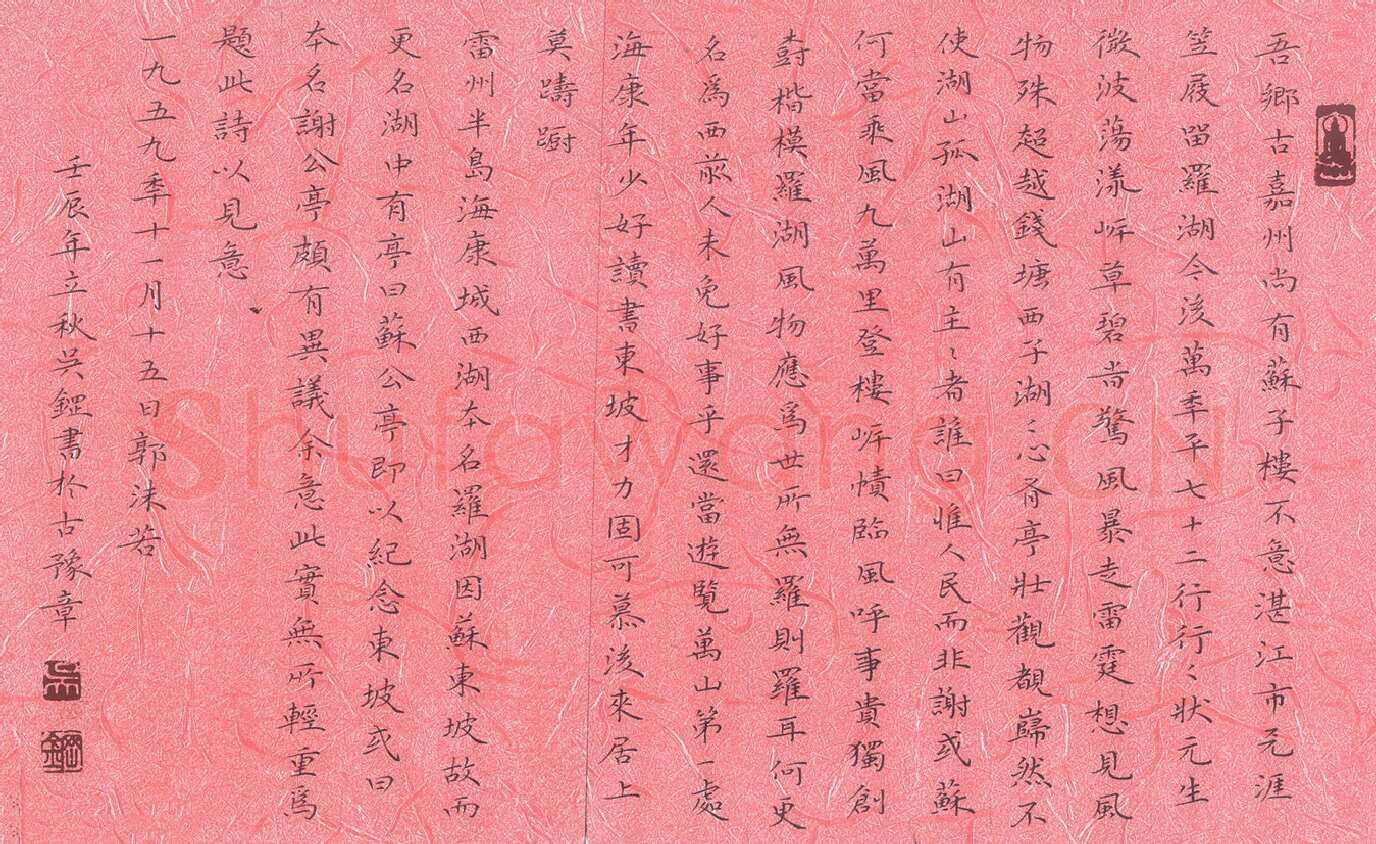 吾鄉古嘉州尚有蘇子樓不意湛江市天涯
笠屐留羅湖今後萬年平七十二行行〻狀元生
微波蕩漾岸草碧當驚風暴走雷霆想見風
物殊超越錢塘西子湖〻心有亭壯觀覩巋然不
使湖山孤湖山有主〻者誰曰惟人民而非謝或蘇
何當乘風九萬里登樓岸幘臨風呼事貴獨創
尌楷模羅湖風物應爲世所無羅則羅耳何更
名爲西前人未免好事乎還當遊覧萬山第一處
海康年少好讀書東坡才力固可慕後來居上
莫躊躕
雷州半島海康城西湖本名羅湖因蘇東坡故而
更名湖中有亭曰蘇公亭即以紀念東坡或曰
本名謝公亭頗有異議余意此實無所輕重爲
題此詩以見意
一九五九季十一月十五日郭沫若
壬辰年立秋吴鋞書於古豫章
Shufawang.CN